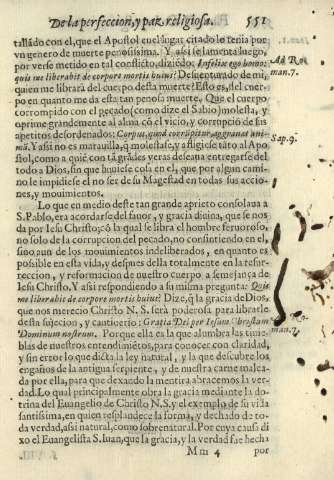 De la perfeccion, y paz religiosa. 551
tallado con el, que el Apostol en el lugar citado le tenia por
vn genero de muerte penosissima. Y assi se lamenta luego,
por verse metido en tal conflicto, diziẽdo: Infelix ego homo:
quis me liberabit de corpore mortis huius? Desuenturado de mi,
quien me librarà del cuerpo desta muerte? Esto es, del cuerpo
en quanto me da esta tan penosa muerte, Que el cuerpo
corrompido con el pecado (como dize el Sabio) molesta, y
oprime grandemente al alma cõ el vicio, y corrupciõ de sus
apetitos desordenados: Corpus, quod corrũpitur, aggrauat animã.
Y assi no es marauilla, q̃ molestasse, y afligiesse tãto al Apostol,
como a quiẽ con tã grãdes veras desseaua entregarse del
todo a Dios, sin que huuiesse cosa en el, que por algun camino
le impidiesse el no ser de su Magestad en todas sus acciones,
y mouimientos.
Lo que en medio deste tan grande aprieto consolaua a
S. Pablo, era acordarse del fauor, y gracia diuina, que se nos
da por Iesu Christo; cõ la qual se libra el hombre feruoroso,
no solo de la corrupcion del pecado, no consintiendo en el,
sino aun de los mouimientos indeliberados, en quanto es
possible en esta vida, y despues della totalmente en la resurreccion,
y reformacion de nuestro cuerpo a semejança de
Iesu Christo. Y assi respondiendo a su misma pregunta: Quis
me liberabit de corpore mortis huius? Dize, q̃ la gracia de Dios,
que nos merecio Christo N. S. serà poderosa para librarle
desta sujecion, y cautiuerio: Gratia Dei per Iesum Christum
Dominum nostrum. Porque ella es la que alumbra las tinieblas
de nuestros entendimiẽtos, para conocer con claridad,
y sin error lo que dicta la ley natural, y la que descubre los
engaños de la antigua serpiente, y de nuestra carne maleada
por ella, para que dexando la mentira abracemos la verdad.
Lo qual principalmente obra la gracia mediante la dotrina
del Euangelio de Christo N. S. y el exemplo de su vida
santissima, en quien resplandece la forma, y dechado de toda
verdad, assi natural, como sobrenatural. Por cuya causa dixo
el Euangelista S. Iuan, que la gracia, y la verdad fue hecha
Mm 4 por
Ad Roman.
7.
Sap. 9.
man. 7.